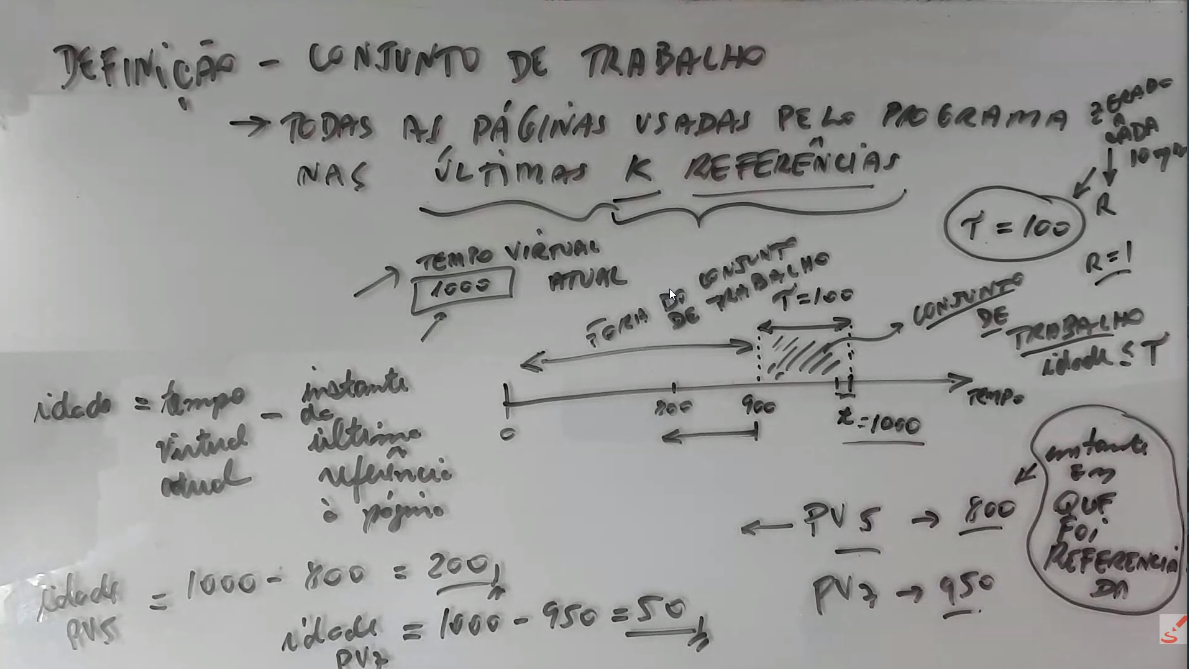 DEFINIÇÃO - CONJUNTO DE TRABALHO
→ TODAS AS PÁGINAS USADAS PELO PROGRAMA
NAS ÚLTIMAS K REFERÊNCIAS
ZERADO
A
CADA
R
T = 100
R = 1
TEMPO VIRTUAL
1000 ATUAL
FORA DO CONJUNTO
DE TRABALHO
T = 100
CONJUNTO
DE
TRABALHO
idade ≤ T
0
800
900
t = 1000
TEMPO
idade = tempo virtual atual - instante da última referência à página
instante
EM
QUE
FOI
REFERENCIA
DA
← PV5 → 800
PV7 → 950
idade PV5 = 1000 - 800 = 200
idade PV7 = 1000 - 950 = 50